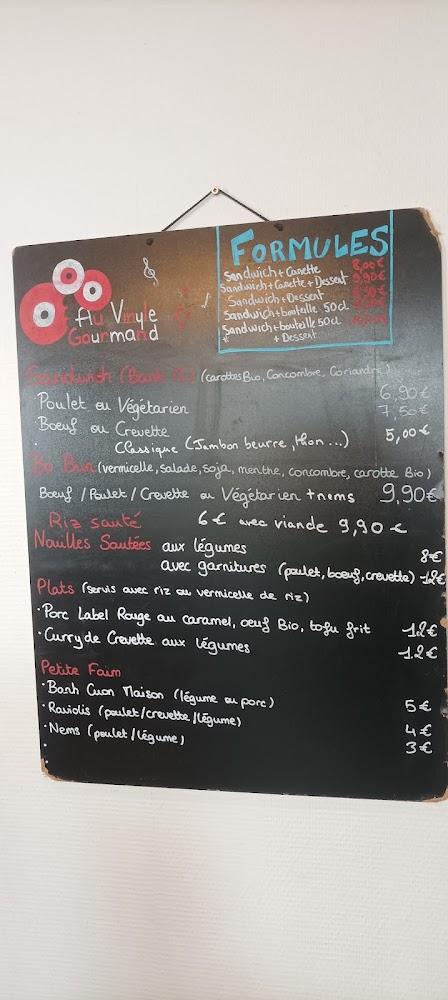 Au Vinyle
Gourmand
FORMULES
Sandwich + Canette 8,00€
Sandwich + Canette + Dessert 9,90€
Sandwich + Dessert
Sandwich + bouteille 50cl
Sandwich + bouteille 50cl
+ Dessert
Sandwich (Banh Mi) (carottes Bio, Concombre, Coriandre)
Poulet ou Végétarien 6,90€
Boeuf ou Crevette 7,50€
Classique (Jambon beurre, thon...) 5,00€
Bo Bun (vermicelle, salade, soja, menthe, concombre, carotte Bio)
Boeuf / Poulet / Crevette ou Végétarien + nems 9,90€
Riz sauté 6€ avec viande 9,90€
Nouilles Sautées aux légumes 8€
avec garnitures (poulet, boeuf, crevette) 12€
Plats (servis avec riz ou vermicelle de riz)
• Porc Label Rouge au caramel, oeuf Bio, tofu frit 12€
• Curry de Crevette aux légumes 12€
Petite Faim
• Banh Cuon Maison (légume ou porc) 5€
• Raviolis (poulet/crevette/légume) 4€
• Nems (poulet/légume) 3€